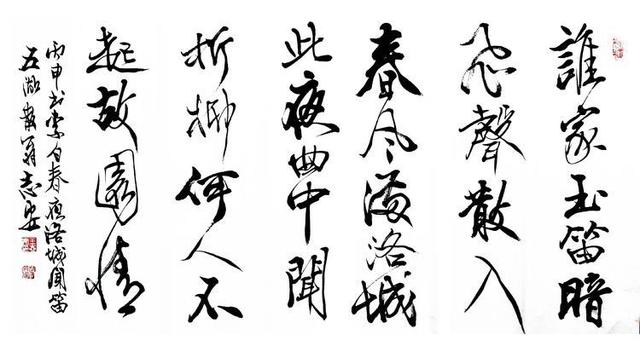 誰家玉笛暗
飛聲散入
春风滿洛城
此夜曲中聞
折柳何人不
起故園情
丙申书李白春夜洛城聞笛
五湖散翁志安